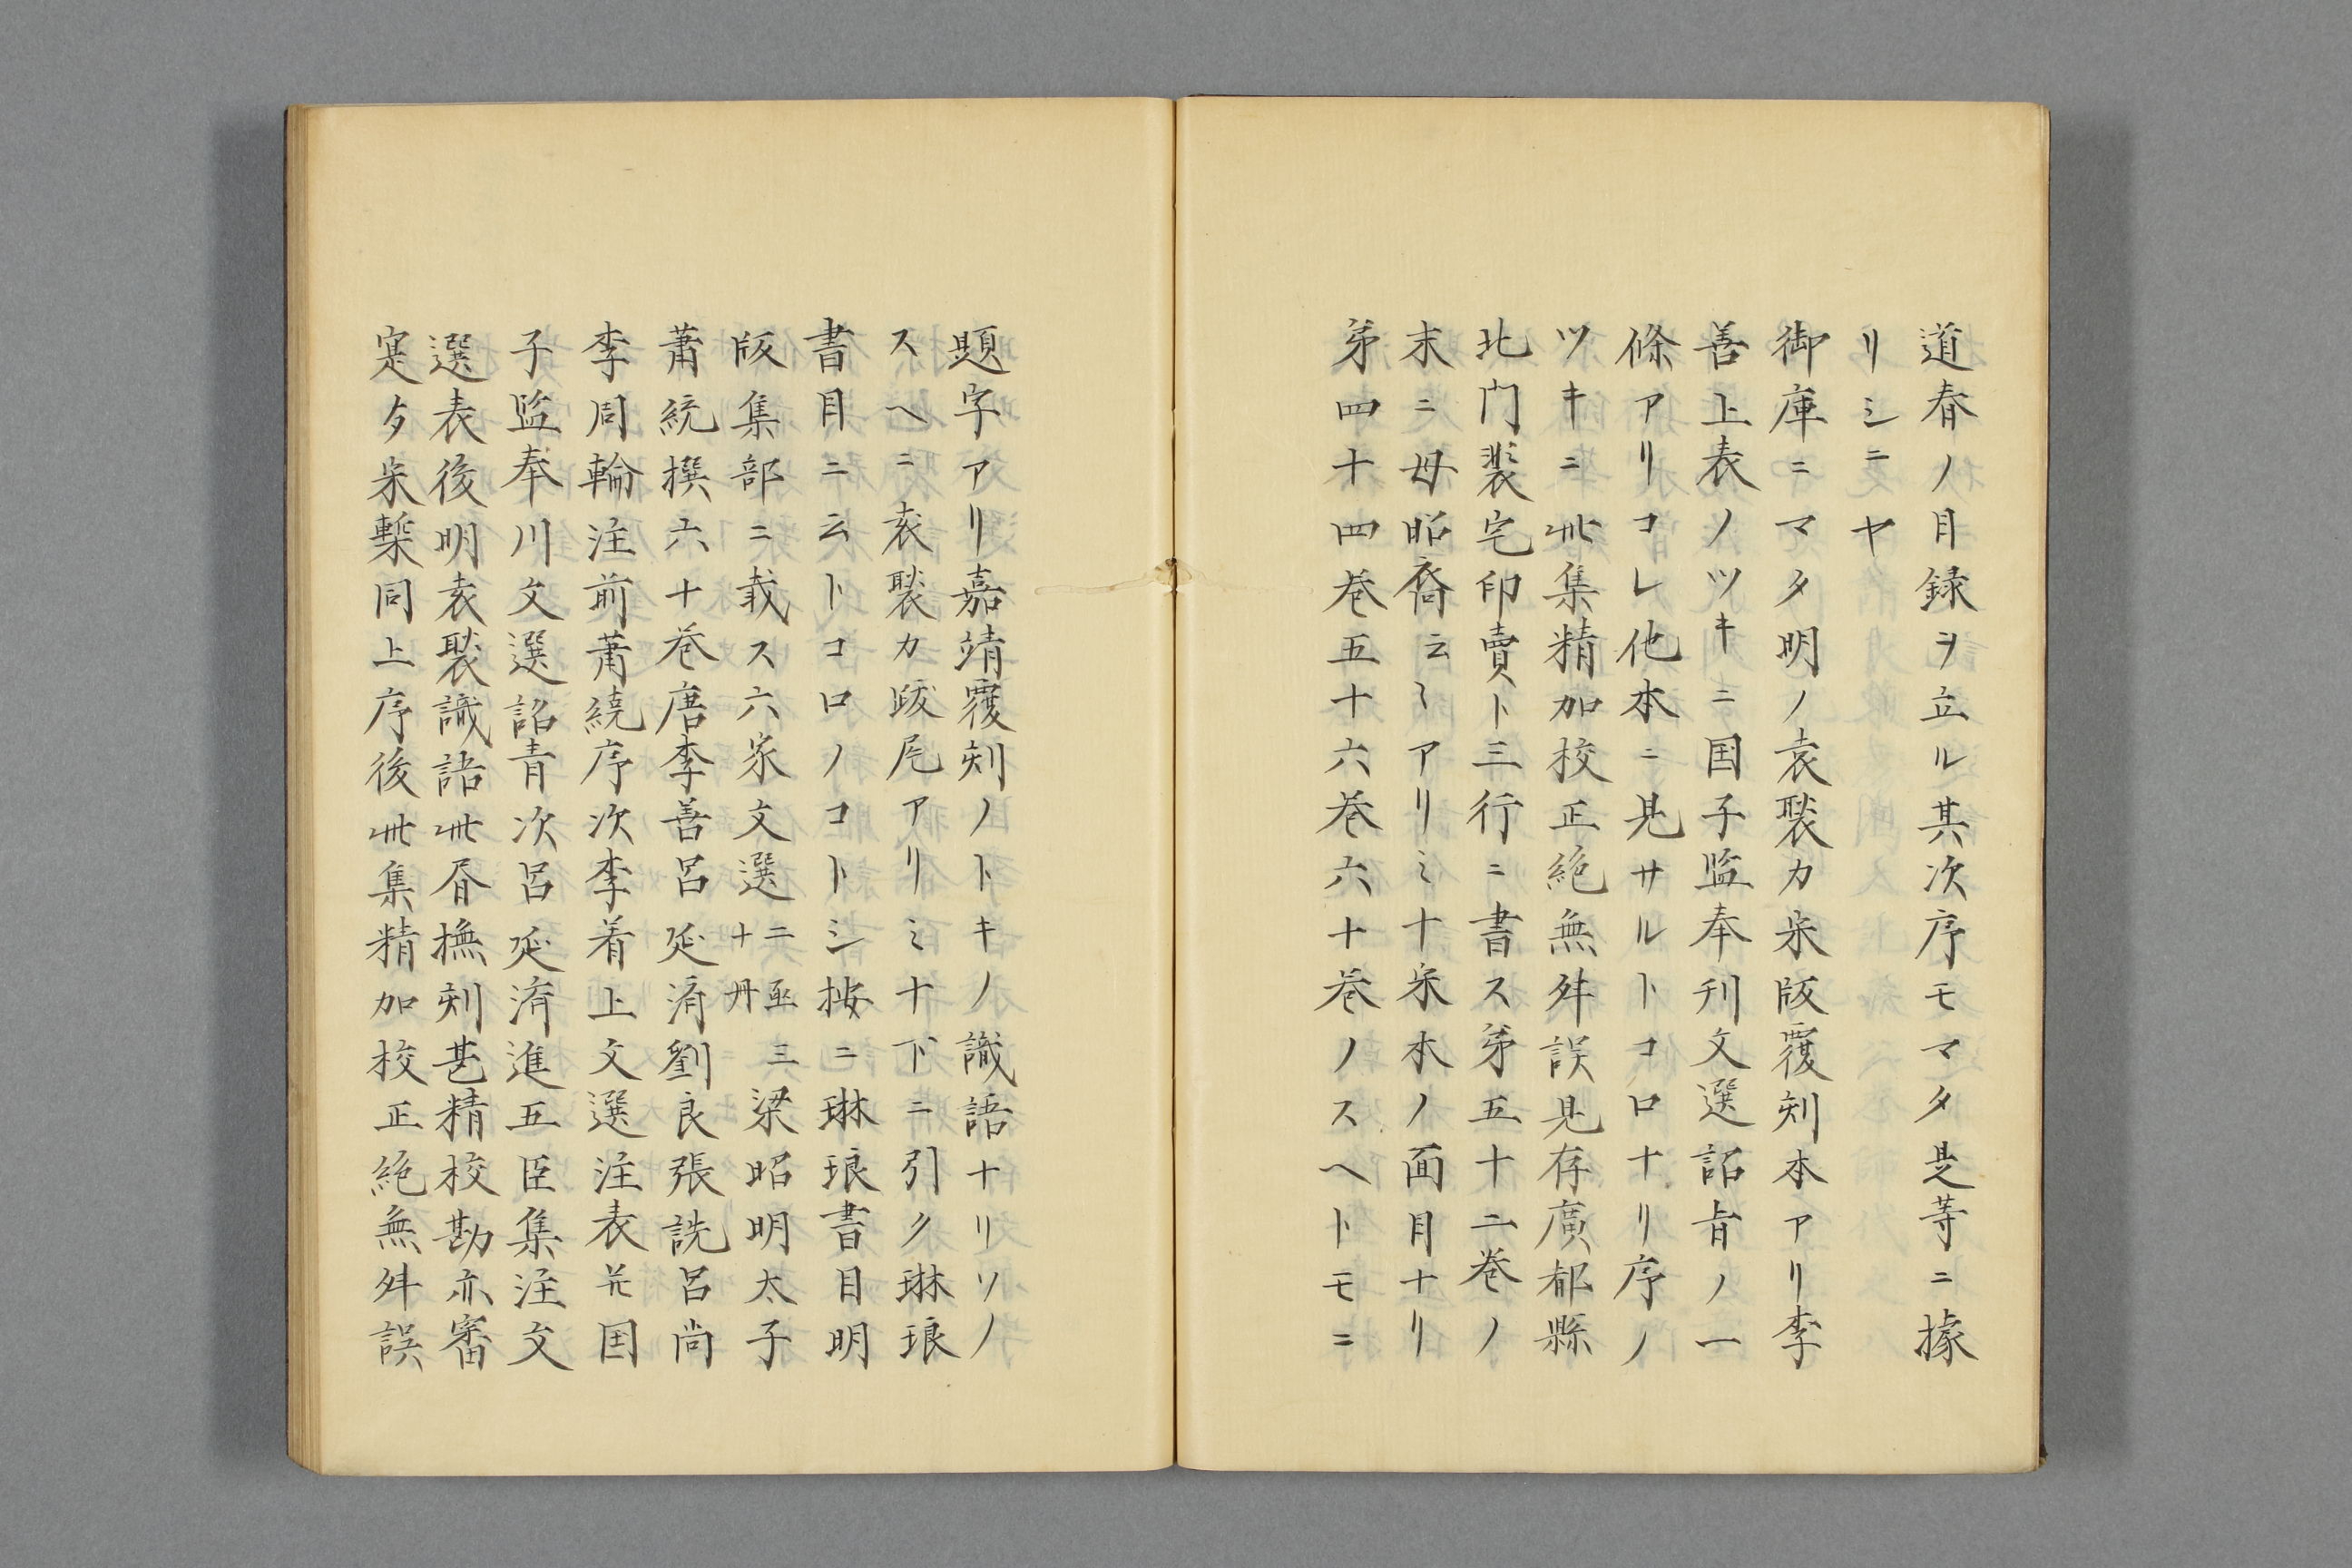 道春ノ目録ヲ立ル其次序モマタ是等ニ據
リシニヤ
御庫ニマタ明ノ袁褧カ宋版覆刻本アリ李
善上表ノツキニ国子監奉刊文選詔旨ノ一
條アリコレ他本ニ見サルトコロナリ序ノ
ツキニ此集精加校正絶無舛誤見存廣都縣
北門裴宅印賣ト三行ニ書ス第五十二巻ノ
末ニ母昭裔云〻アリミナ宋本ノ面目ナリ
第四十四巻五十六巻六十巻ノスヘトモニ
題字アリ嘉靖覆刻ノトキノ識語ナリソノ
スヘニ袁褧カ跋尾アリミナ下ニ引ク琳琅
書目ニ云トコロノコトシ按ニ琳琅書目明
版集部ニ載ス六家文選二函三十冊梁昭明太子
蕭統撰六十巻唐李善呂延済劉良張詵呂尚
李周翰注前蕭統序次李善上文選注表并国
子監奉刊文選詔旨次呂延済進五臣集注文
選表後明袁褧識語此書撫刻甚精校勘亦審
寔夕宋槧同上序後此集精加校正絶無舛誤